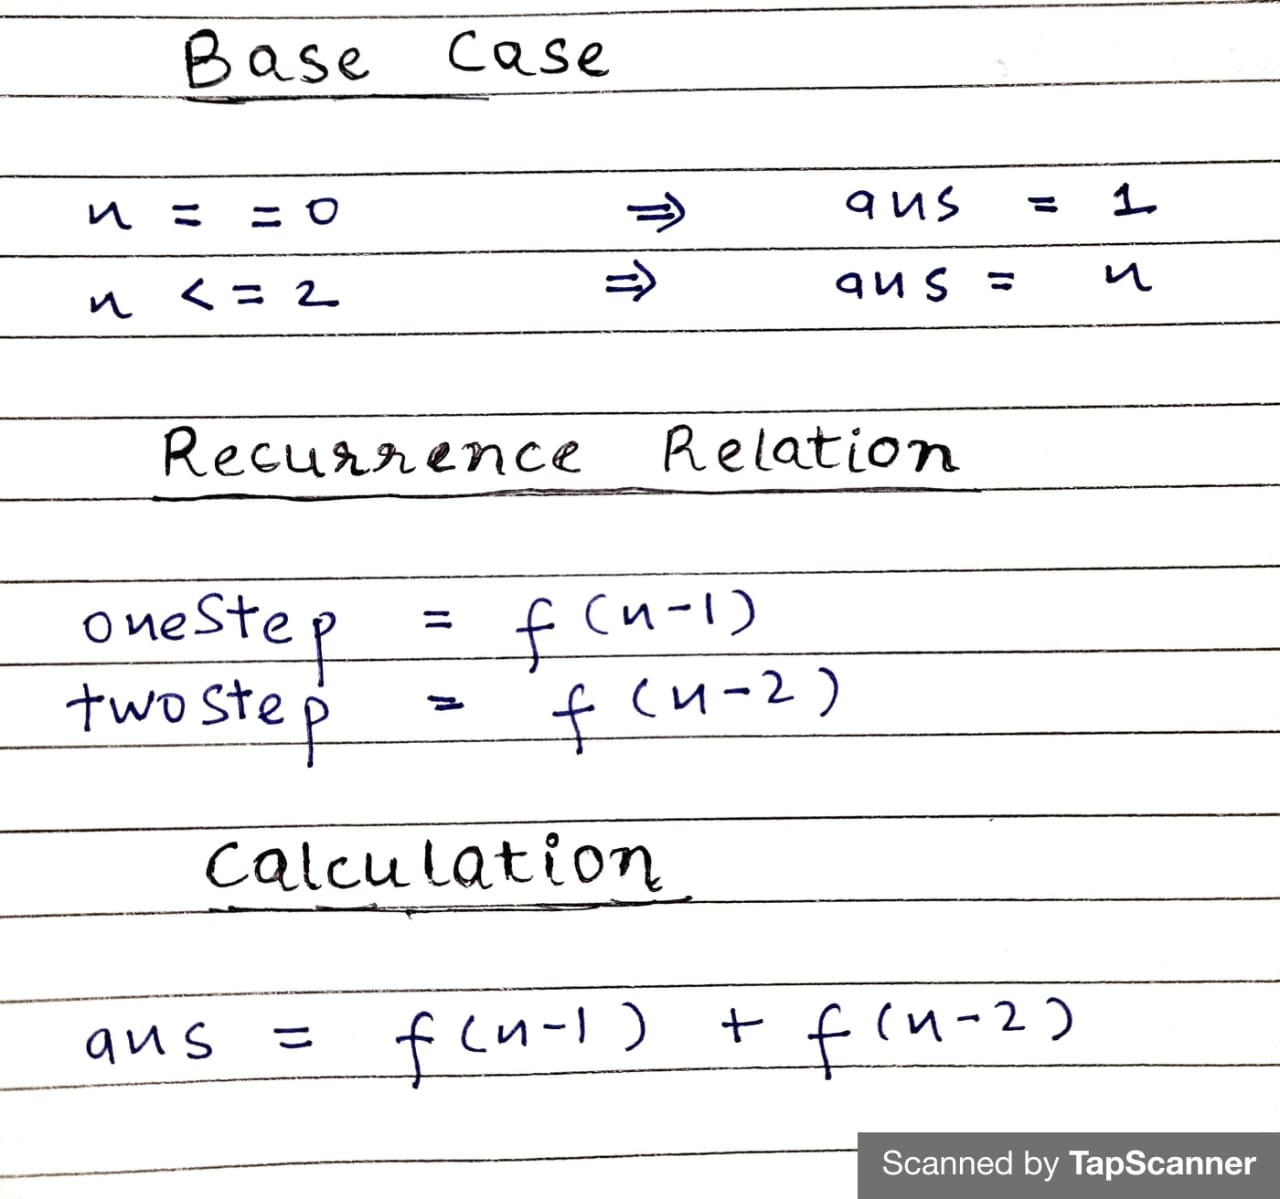 Base Case
n = = 0 ⇒ ans = 1
n < = 2 ⇒ ans = n
Recurrence Relation
oneStep = f(n-1)
twostep = f(n-2)
Calculation
ans = f(n-1) + f(n-2)
Scanned by TapScanner